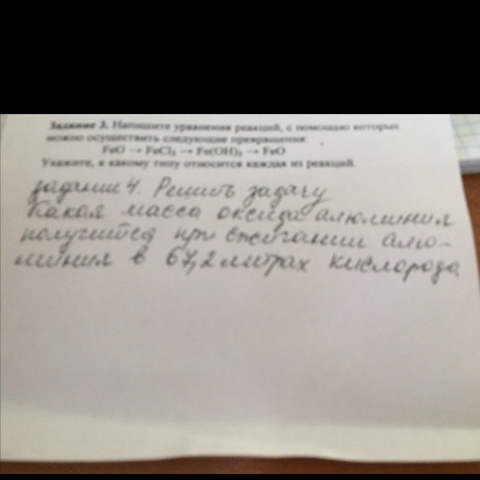 Задание 3. Напишите уравнения реакций, с помощью которых
можно осуществить следующие превращения:
FeO → FeCl₂ → Fe(OH)₂ → FeO
Укажите, к какому типу относится каждая из реакций.
задание 4. Решить задачу
Какая масса оксида алюминия
получится при сжигании алю-
миния в 67,2 литрах кислорода